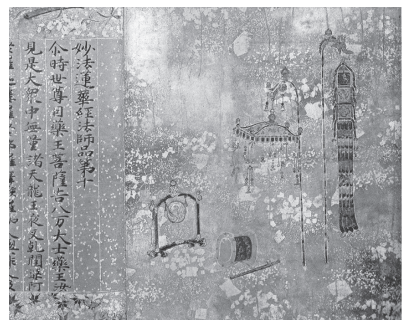 妙法蓮華經法師品第十
尒時世尊因藥王菩薩告八万大士藥王汝
見是大衆中無量諸天龍王夜叉乾闥婆阿